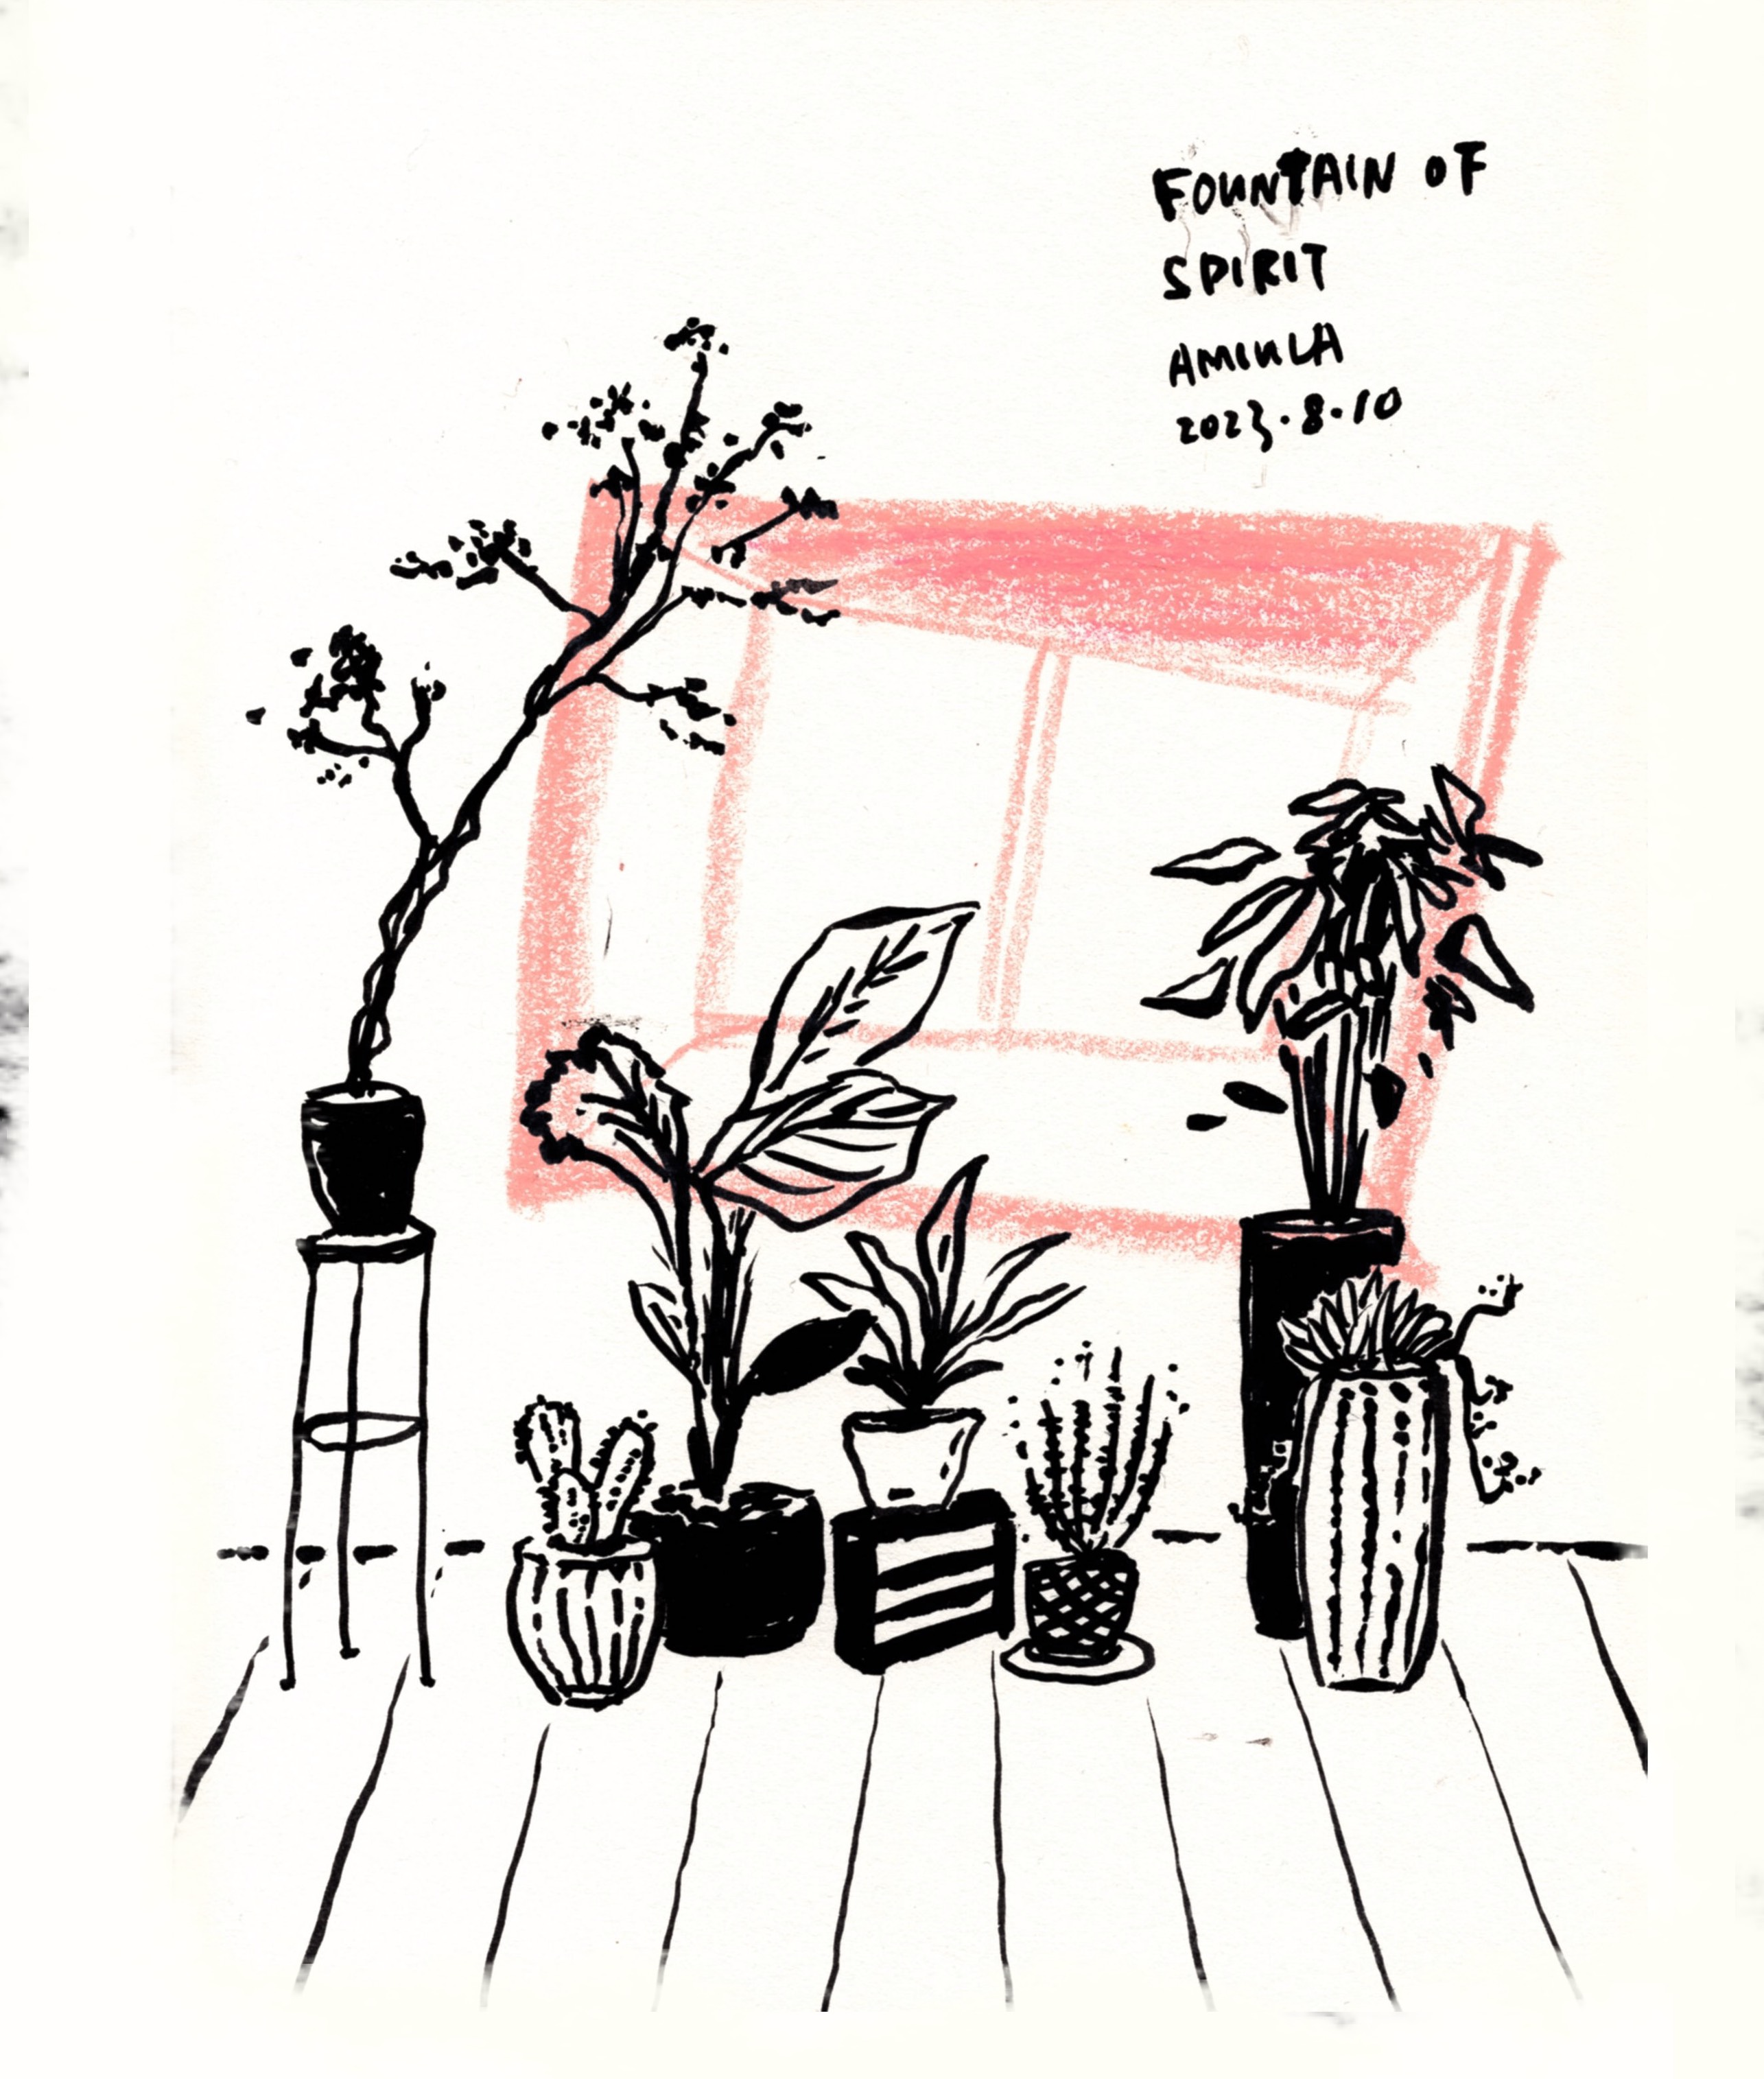 FOUNTAIN OF
SPIRIT
AMIULA
2023.8.10